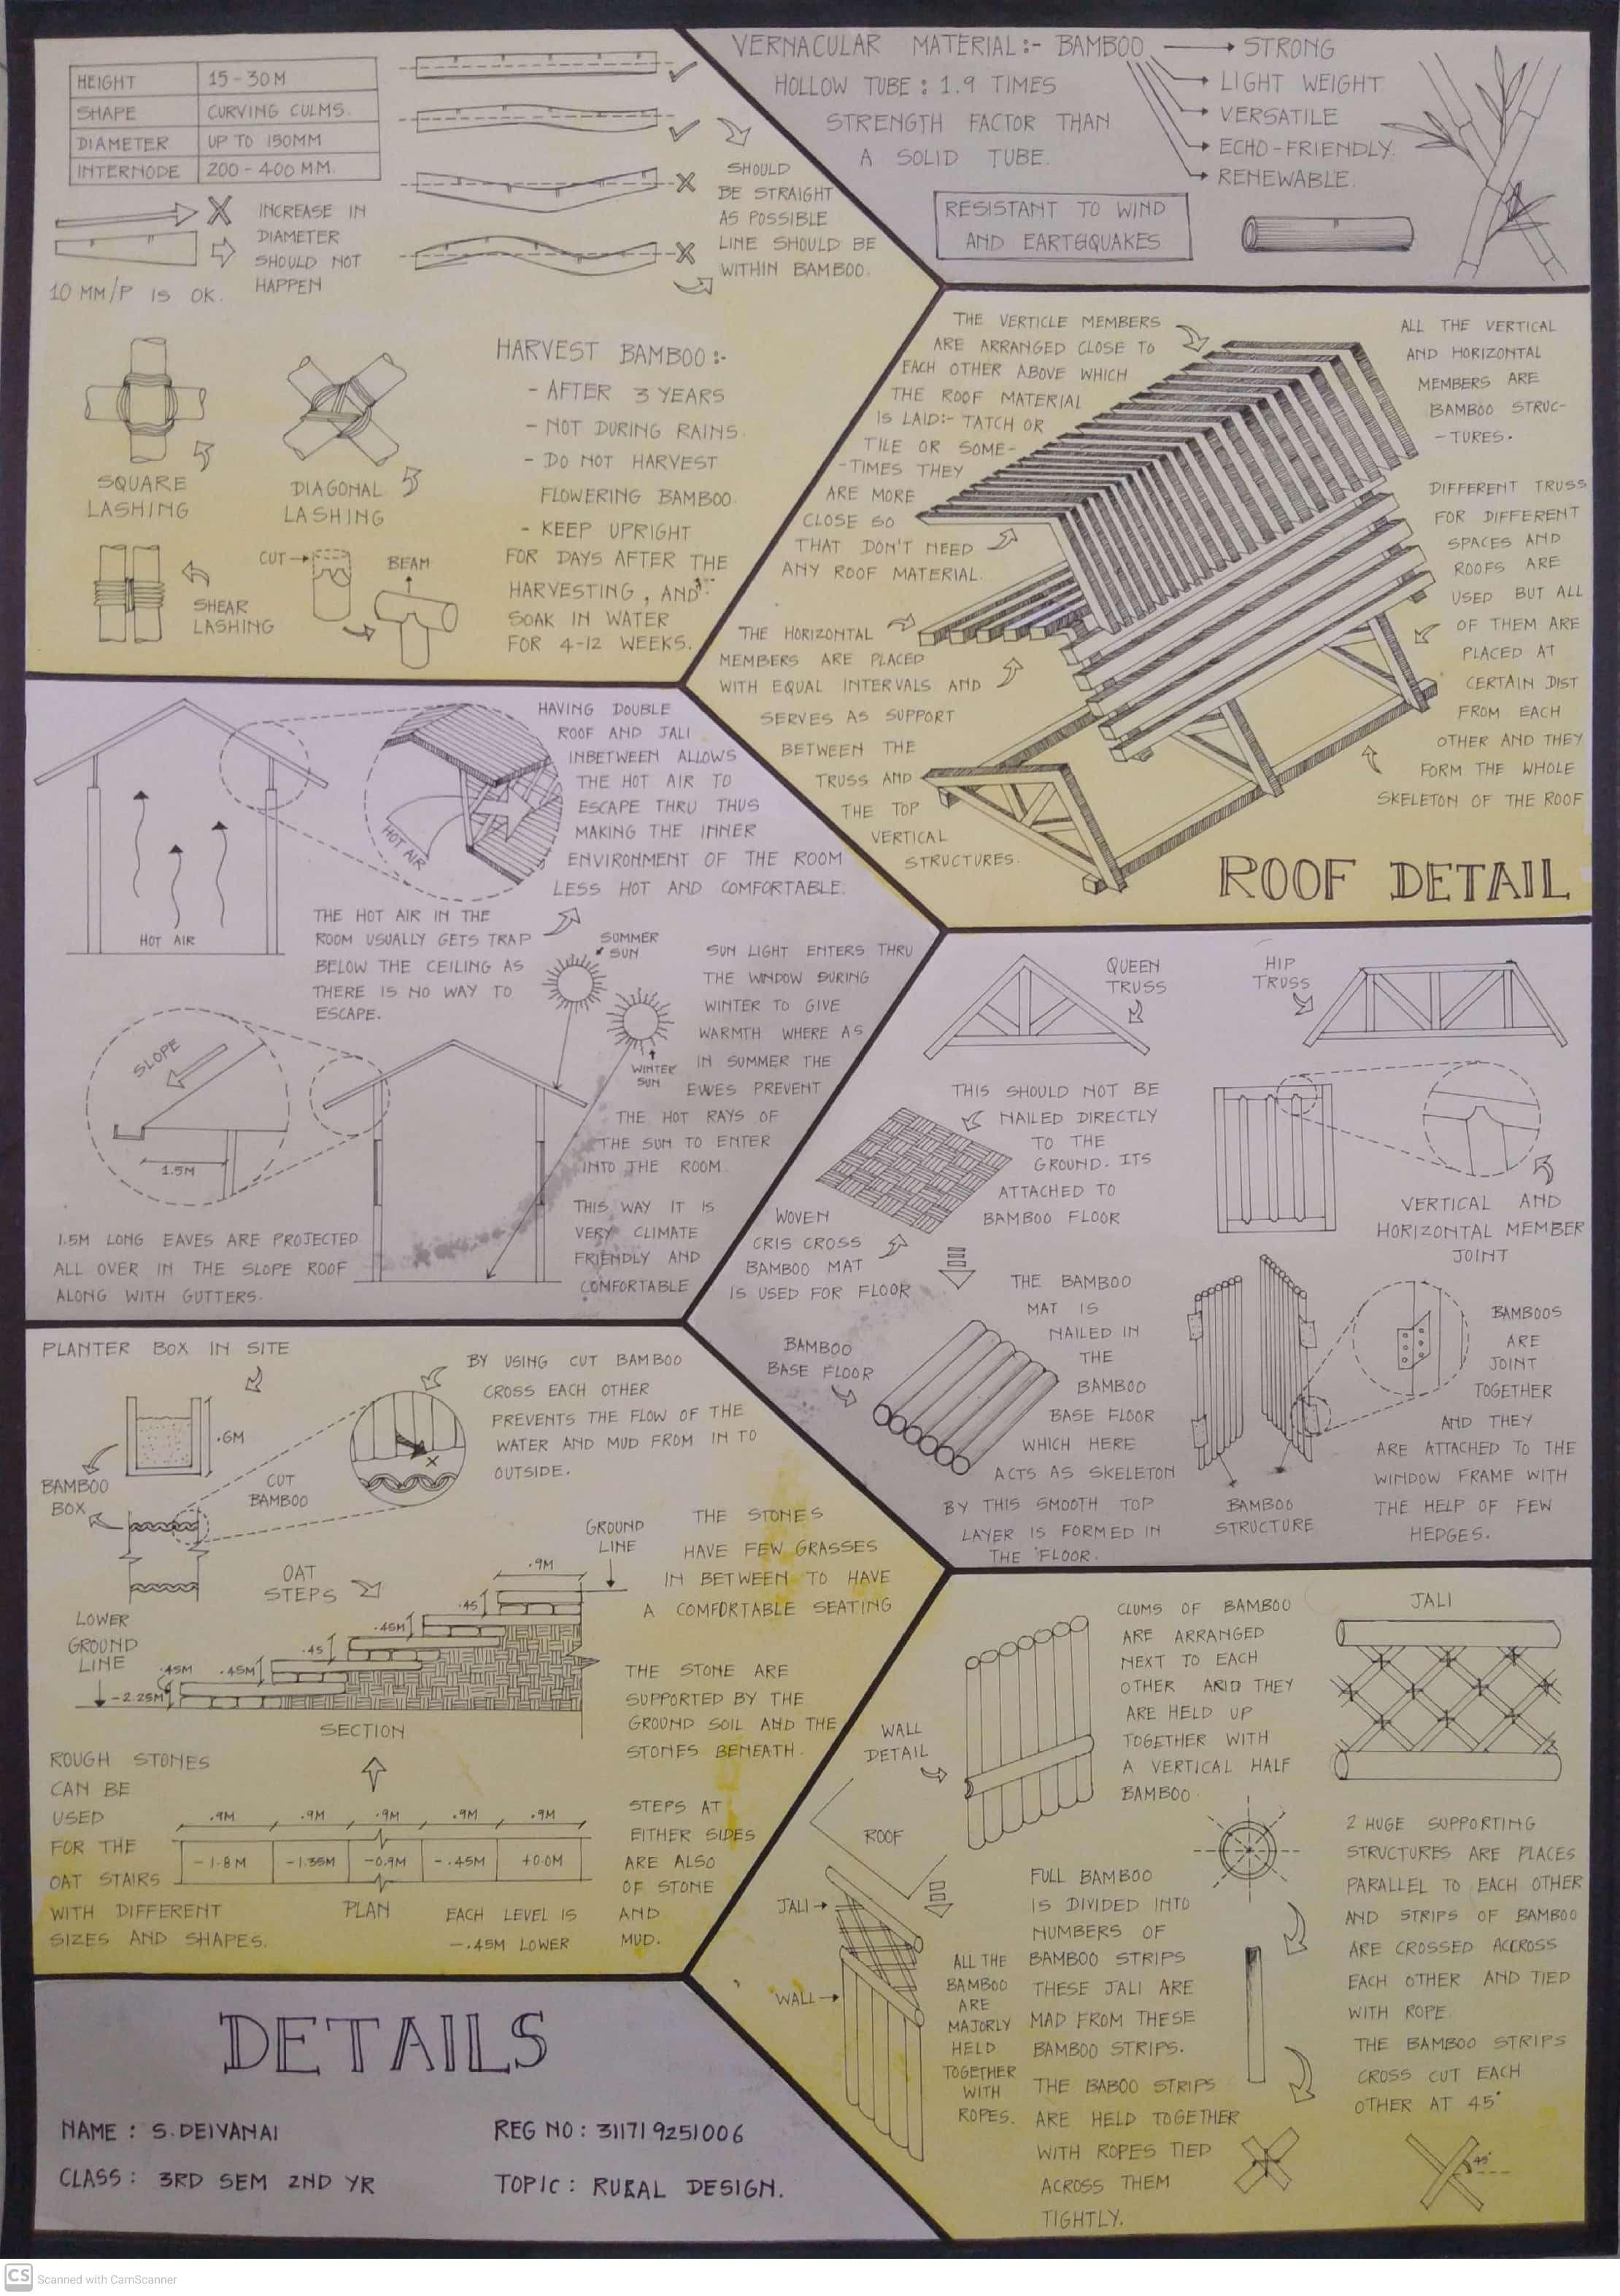 HEIGHT 15-30M
SHAPE CURVING CULMS.
DIAMETER UP TO 150MM
INTERNODE 200-400 MM.
INCREASE IN
DIAMETER
SHOULD NOT
HAPPEN
10 MM/P IS OK.
SHOULD
BE STRAIGHT
AS POSSIBLE
LINE SHOULD BE
WITHIN BAMBOO.
SQUARE
LASHING
DIAGONAL
LASHING
SHEAR
LASHING
CUT
BEAM
HARVEST BAMBOO:-
- AFTER 3 YEARS
- NOT DURING RAINS.
- DO NOT HARVEST
FLOWERING BAMBOO.
- KEEP UPRIGHT
FOR DAYS AFTER THE
HARVESTING, AND
SOAK IN WATER
FOR 4-12 WEEKS.
VERNACULAR MATERIAL:- BAMBOO
HOLLOW TUBE: 1.9 TIMES
STRENGTH FACTOR THAN
A SOLID TUBE.
STRONG
LIGHT WEIGHT
VERSATILE
ECHO-FRIENDLY.
RENEWABLE.
RESISTANT TO WIND
AND EARTGQUAKES
THE VERTICLE MEMBERS
ARE ARRANGED CLOSE TO
EACH OTHER ABOVE WHICH
THE ROOF MATERIAL
IS LAID:- TATCH OR
TILE OR SOME-
-TIMES THEY
ARE MORE
CLOSE SO
THAT DON'T NEED
ANY ROOF MATERIAL.
THE HORIZONTAL
MEMBERS ARE PLACED
WITH EQUAL INTERVALS AND
SERVES AS SUPPORT
BETWEEN THE
TRUSS AND
THE TOP
VERTICAL
STRUCTURES.
ALL THE VERTICAL
AND HORIZONTAL
MEMBERS ARE
BAMBOO STRUC-
-TURES.
DIFFERENT TRUSS
FOR DIFFERENT
SPACES AND
ROOFS ARE
USED BUT ALL
OF THEM ARE
PLACED AT
CERTAIN DIST
FROM EACH
OTHER AND THEY
FORM THE WHOLE
SKELETON OF THE ROOF
ROOF DETAIL
HOT AIR
HOT AIR
HAVING DOUBLE
ROOF AND JALI
INBETWEEN ALLOWS
THE HOT AIR TO
ESCAPE THRU THUS
MAKING THE INNER
ENVIRONMENT OF THE ROOM
LESS HOT AND COMFORTABLE.
THE HOT AIR IN THE
ROOM USUALLY GETS TRAP
BELOW THE CEILING AS
THERE IS NO WAY TO
ESCAPE.
SUMMER
SUN
WINTER
SUN
SUN LIGHT ENTERS THRU
THE WINDOW SURING
WINTER TO GIVE
WARMTH WHERE AS
IN SUMMER THE
EWES PREVENT
THE HOT RAYS OF
THE SUN TO ENTER
INTO THE ROOM.
THIS WAY IT IS
VERY CLIMATE
FRIENDLY AND
COMFORTABLE
SLOPE
1.5M
1.5M LONG EAVES ARE PROJECTED
ALL OVER IN THE SLOPE ROOF
ALONG WITH GUTTERS.
QUEEN
TRUSS
HIP
TRUSS
THIS SHOULD NOT BE
NAILED DIRECTLY
TO THE
GROUND. ITS
ATTACHED TO
BAMBOO FLOOR
WOVEN
CRIS CROSS
BAMBOO MAT
IS USED FOR FLOOR
VERTICAL AND
HORIZONTAL MEMBER
JOINT
BAMBOO
BASE FLOOR
THE BAMBOO
MAT IS
NAILED IN
THE
BAMBOO
BASE FLOOR
WHICH HERE
ACTS AS SKELETON
BY THIS SMOOTH TOP
LAYER IS FORMED IN
THE FLOOR.
BAMBOO
STRUCTURE
BAMBOOS
ARE
JOINT
TOGETHER
AND THEY
ARE ATTACHED TO THE
WINDOW FRAME WITH
THE HELP OF FEW
HEDGES.
PLANTER BOX IN SITE
.6M
BAMBOO
BOX
CUT
BAMBOO
BY USING CUT BAMBOO
CROSS EACH OTHER
PREVENTS THE FLOW OF THE
WATER AND MUD FROM IN TO
OUTSIDE.
OAT
STEPS
GROUND
LINE
.9M
.45
.45M
.45
.45M
.45M
LOWER
GROUND
LINE
-2.25M
SECTION
THE STONES
HAVE FEW GRASSES
IN BETWEEN TO HAVE
A COMFORTABLE SEATING
THE STONE ARE
SUPPORTED BY THE
GROUND SOIL AND THE
STONES BENEATH.
ROUGH STONES
CAN BE
USED
FOR THE
OAT STAIRS
WITH DIFFERENT
SIZES AND SHAPES.
.9M .9M .9M .9M .9M
-1.8M -1.35M -0.9M -.45M +0.0M
PLAN
EACH LEVEL IS
-.45M LOWER
STEPS AT
EITHER SIDES
ARE ALSO
OF STONE
AND
MUD.
WALL
DETAIL
CLUMS OF BAMBOO
ARE ARRANGED
NEXT TO EACH
OTHER AND THEY
ARE HELD UP
TOGETHER WITH
A VERTICAL HALF
BAMBOO.
JALI
ROOF
JALI
WALL
ALL THE
BAMBOO
ARE
MAJORLY
HELD
TOGETHER
WITH
ROPES.
FULL BAMBOO
IS DIVIDED INTO
NUMBERS OF
BAMBOO STRIPS
THESE JALI ARE
MAD FROM THESE
BAMBOO STRIPS.
THE BABOO STRIPS
ARE HELD TOGETHER
WITH ROPES TIED
ACROSS THEM
TIGHTLY.
2 HUGE SUPPORTING
STRUCTURES ARE PLACES
PARALLEL TO EACH OTHER
AND STRIPS OF BAMBOO
ARE CROSSED ACCROSS
EACH OTHER AND TIED
WITH ROPE.
THE BAMBOO STRIPS
CROSS CUT EACH
OTHER AT 45°
45°
DETAILS
NAME : S.DEIVANAI
REG NO: 311719251006
CLASS: 3RD SEM 2ND YR
TOPIC: RURAL DESIGN.
CS Scanned with CamScanner